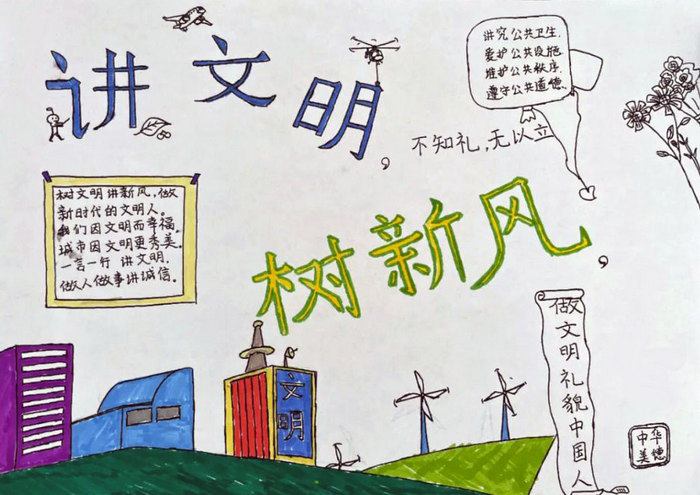 讲文明,
讲究公共卫生,
爱护公共设施,
维护公共秩序,
遵守公共道德.
不知礼,无以立
树文明讲新风,做
新时代的文明人。
我们因文明而幸福.
城市因文明更秀美.
一言一行 讲文明.
做人做事讲诚信。
树新风,
文明
做文明礼貌中国人
中华
美德